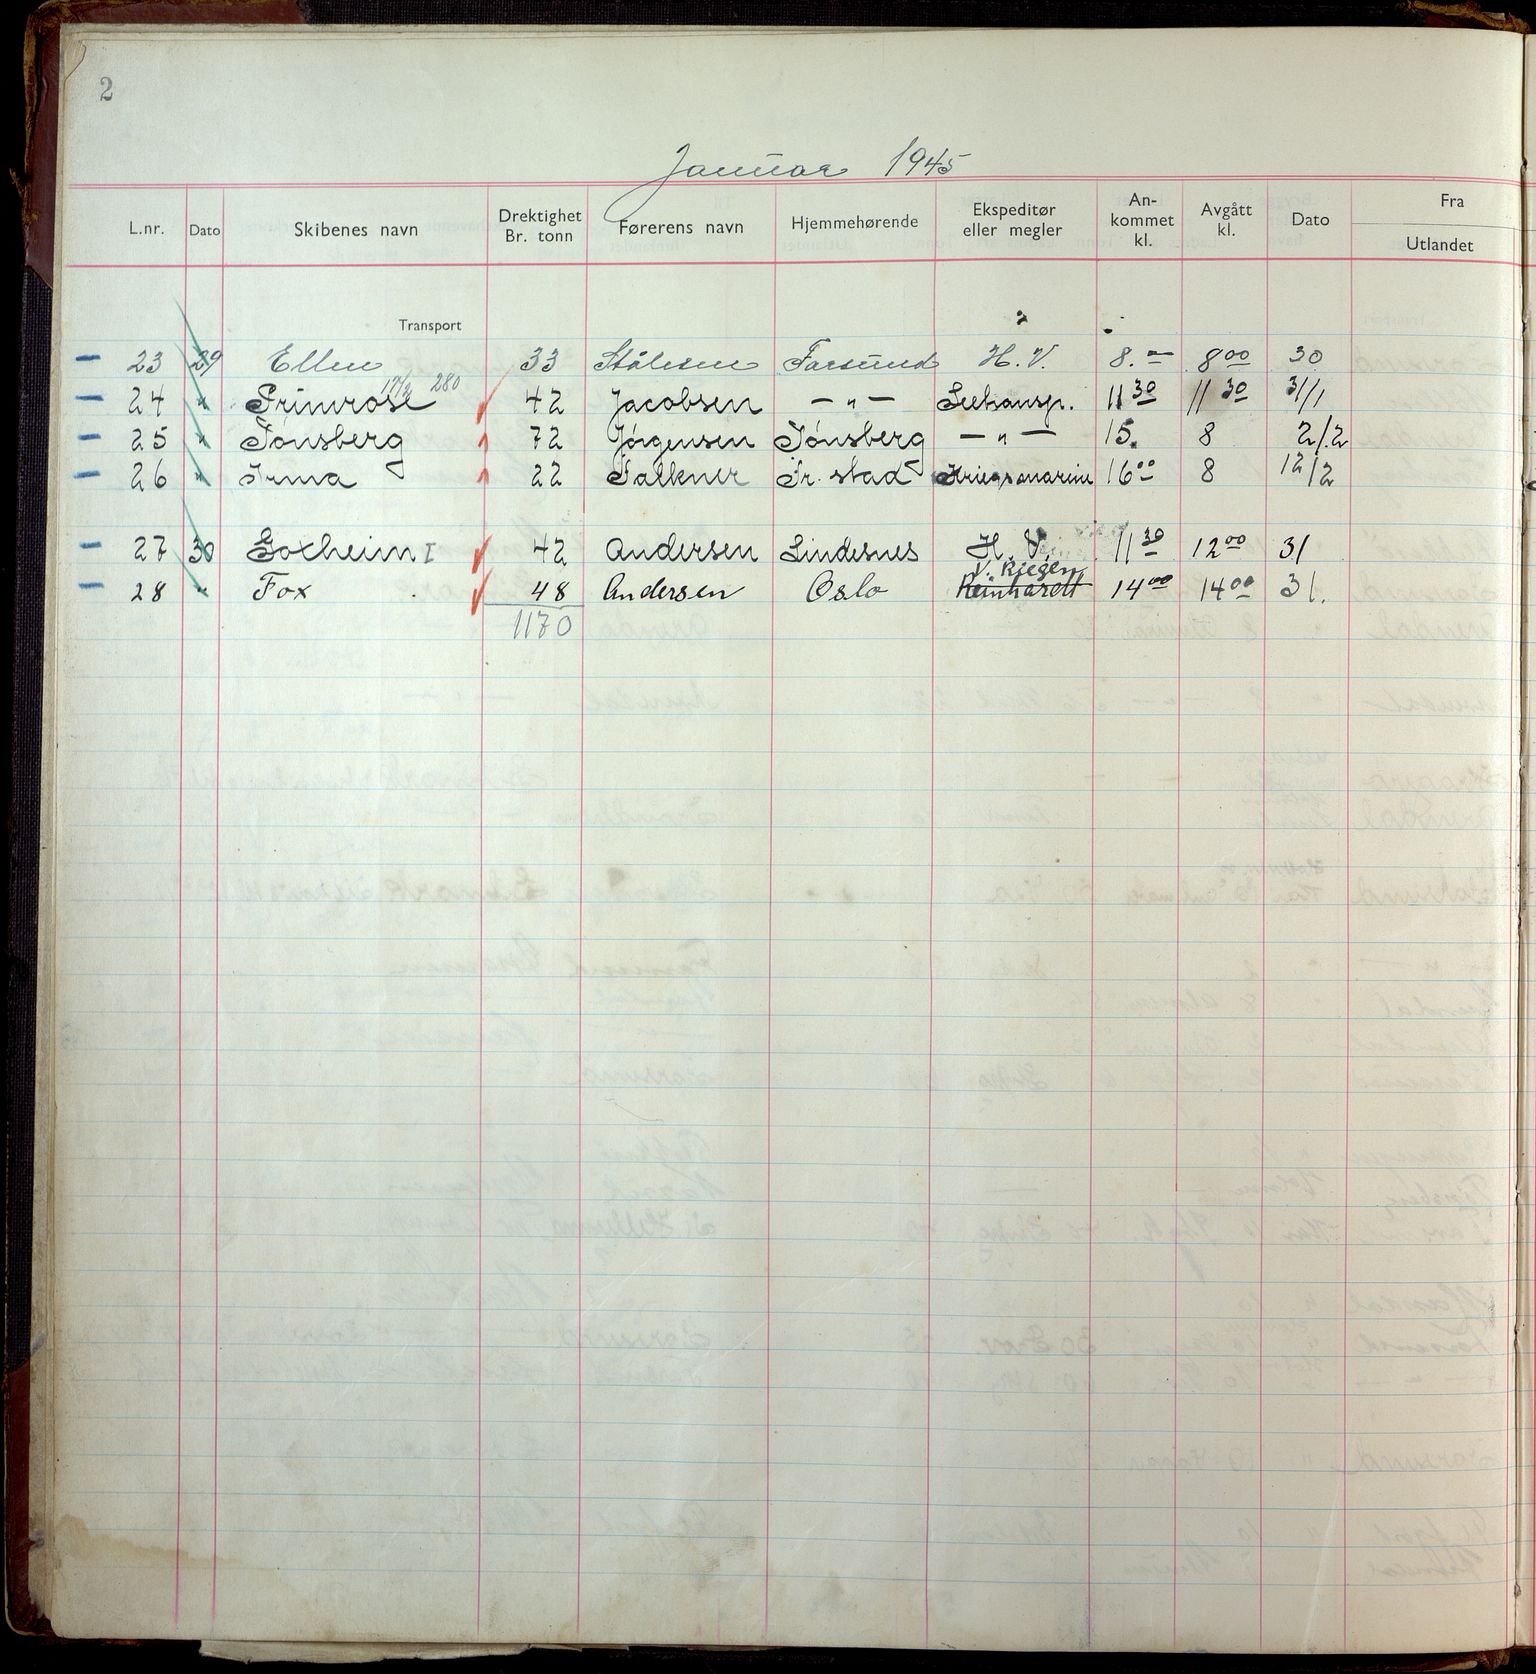 2
Januar 1945
L.nr. Dato Skibenes navn Drektighet Br. tonn Førerens navn Hjemmehørende Ekspeditør eller megler An-kommet kl. Avgått kl. Dato Fra Utlandet
Transport
23 29 Ellen 33 Stålesen Farsund H. V. 8.— 8 00 30
24 " Primrose 17/2 280 42 Jacobsen — " — Seetransp. 11 30 11 30 31/1
25 " Tönsberg 72 Jörgensen Tönsberg — " — 15. 8 2/2
26 " Irma 22 Falkner Fr. stad Kriegsmarine 16 00 8 12/2
27 30 Goxheim I 42 Andersen Lindesnes H. V. 11 30 12 00 31
V. Riegen
28 " Fox 48 Andersen Oslo Reinhardt 14 00 14 00 31.
1170